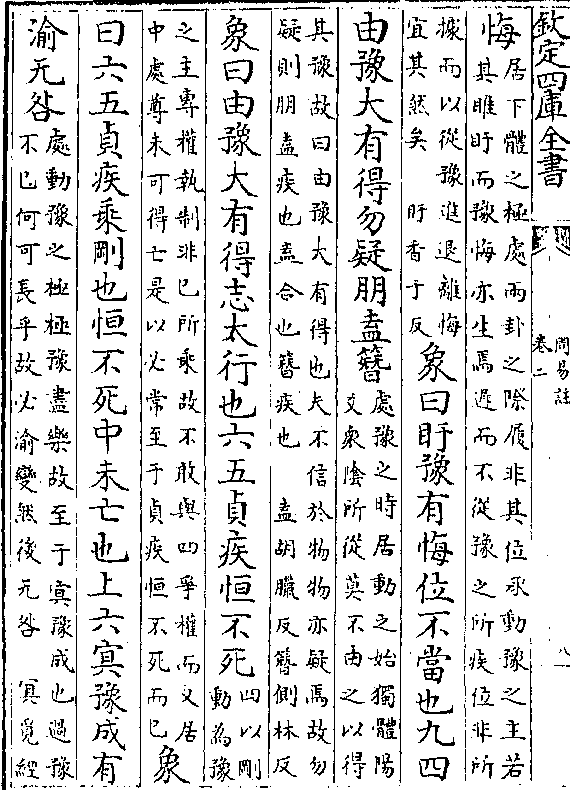 欽定四庫全書
周易註
卷二
悔居下體之極處兩卦之際履非其位承動豫之主若
其睢盱而豫悔亦生焉遲而不從豫之所疾位非所
據而以從豫進退離悔
宜其然矣 盱香于反
象曰盱豫有悔位不當也九四
由豫大有得勿疑朋盍簪處豫之時居動之始獨體陽
爻衆陰所從莫不由之以得
其豫故曰由豫大有得也夫不信於物物亦疑焉故勿
疑則朋盍疾也盍合也簪疾也 盍胡臘反簪側林反
象曰由豫大有得志大行也六五貞疾恒不死四以剛
動為豫
之主專權執制非已所乘故不敢與四爭權而又居
中處尊未可得亡是以必常至于貞疾恒不死而已
象
曰六五貞疾乘剛也恒不死中未亡也上六㝠豫成有
渝无咎處動豫之極極豫盡樂故至于㝠豫成也過豫
不已何可長乎故必渝變然後无咎 㝠覓經